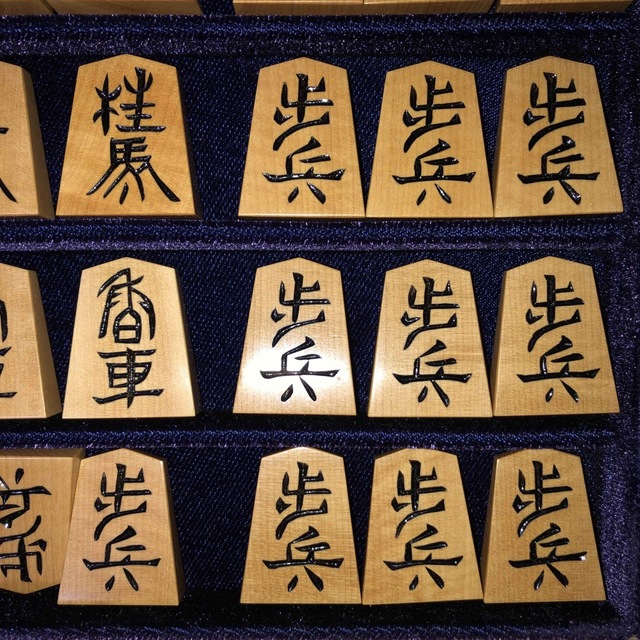 桂馬 歩兵 歩兵 歩兵
香車 歩兵 歩兵 歩兵
歩兵 歩兵 歩兵 歩兵